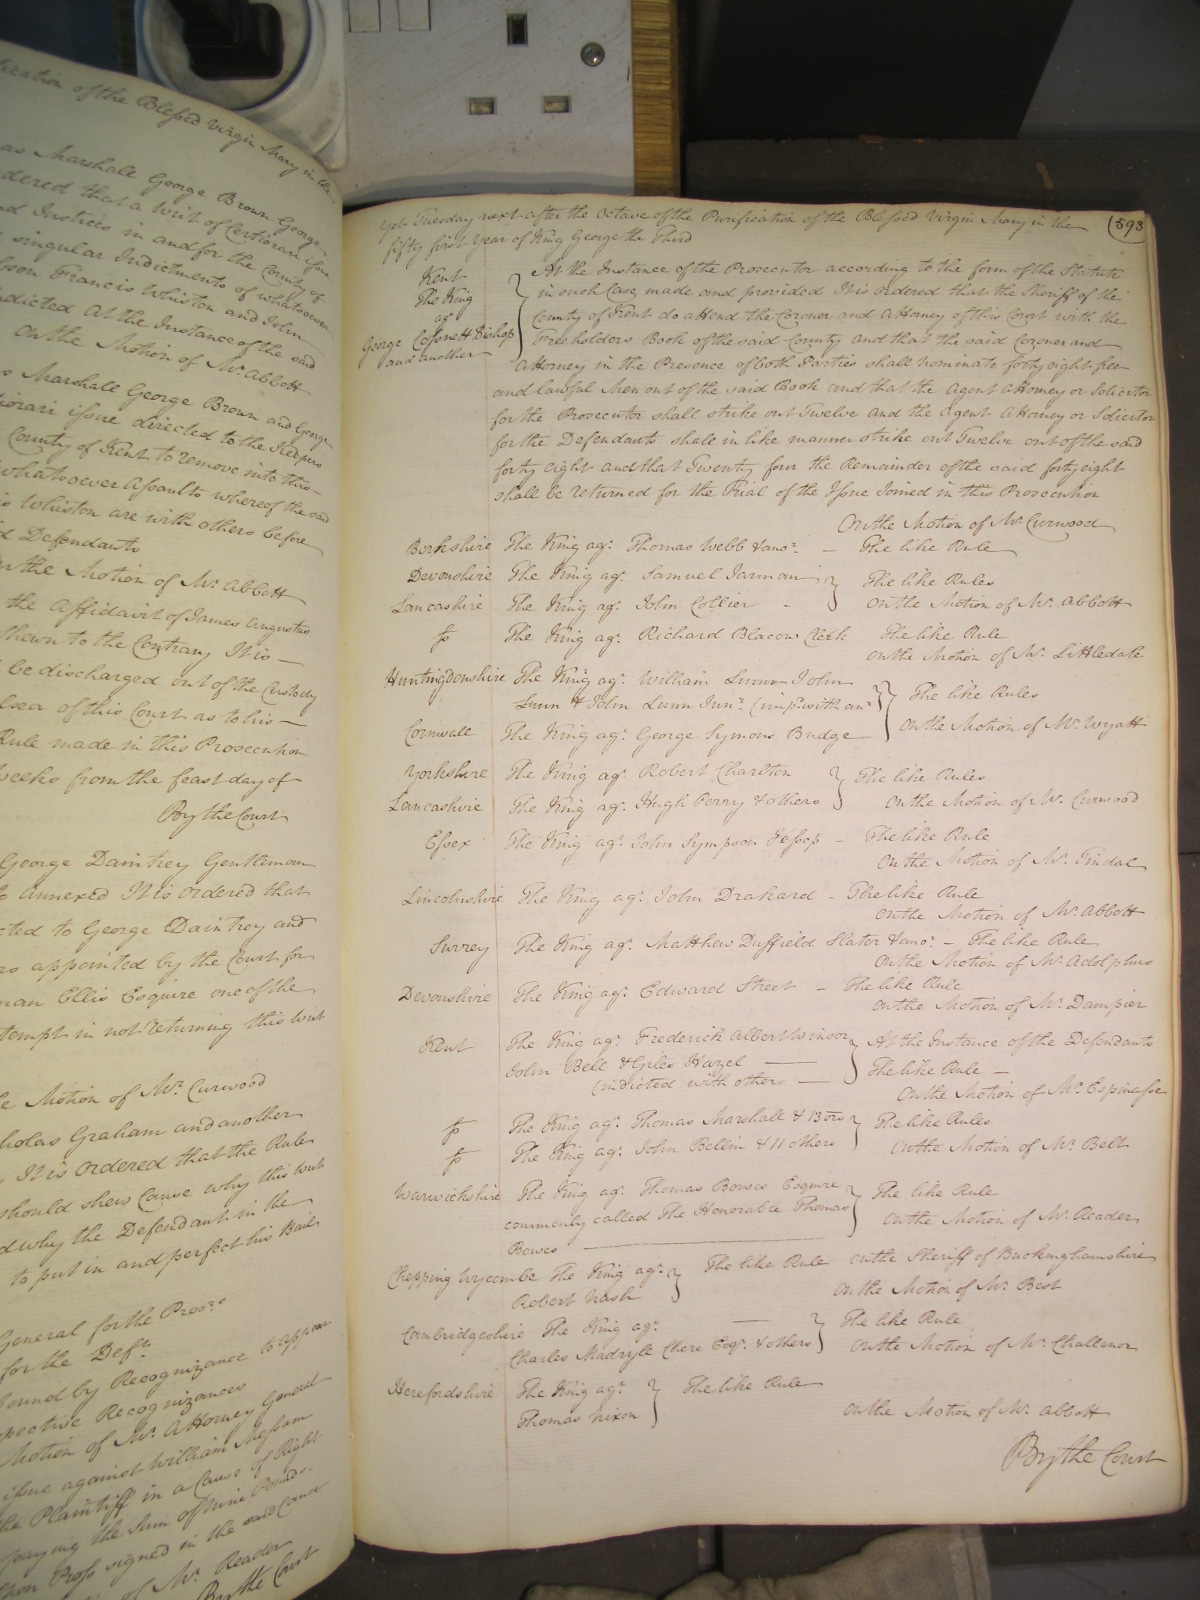 ication of the Blessed Virgin Mary in the
as Marshall George Brown George
dered that a Writ of Certiorari issue
nd Justices in and for the County of
singular Indictments of whatsoever
son Francis Whiston and John
ndicted At the Instance of the said
On the Motion of Mr. Abbott
s Marshall George Brown and George
iorari issue directed to the Keepers
County of Kent to remove into this
whatsoever Assaults whereof the said
is Whiston are with others before
d Defendants
On the Motion of Mr. Abbott
the Affidavit of James Augustus
shewn to the Contrary It is
be discharged out of the Custody
lsea of this Court as to his
Rule made in this Prosecution
weeks from the feast day of
By the Court
George Daintrey Gentleman
to annexed It is ordered that
cted to George Daintrey and
rs appointed by the Court for
man Ellis Esquire one of the
tempt in not returning this Writ
e Motion of Mr. Curwood
holas Graham and another
It is ordered that the Rule
should shew Cause why this Writ
d why the Defendant in the
to put in and perfect his Bail
General for the Pros:rs
for the Defts
bound by Recognizance to appear
spective Recognizances
Motion of Mr. Attorney General
issue against William Messam
the Plaintiff in a Cause of Right
paying the Sum of Nine Pounds
upon Process signed in the said Cause
of Mr. Reader
By the Court
Yet Tuesday next after the Octave of the Purification of the Blessed Virgin Mary in the (593
fifty first Year of King George the Third
Kent
The King
agt.
George Cossnett Bishop
and another
At the Instance of the Prosecutor according to the form of the Statute
in such Case made and provided It is ordered that the Sheriff of the
County of Kent do attend the Coroner and Attorney of this Court with the
Freeholders Book of the said County and that the said Coroner and
Attorney in the Presence of both Parties shall nominate forty eight free
and lawful Men out of the said Book and that the Agent Attorney or Solicitor
for the Prosecutor shall strike out Twelve and the Agent Attorney or Solicitor
for the Defendants shall in like manner strike out Twelve out of the said
forty eight and that Twenty four the Remainder of the said forty eight
shall be returned for the Trial of the Issue Joined in this Prosecution
On the Motion of Mr. Curwood
Berkshire The King agt. Thomas Webb & anor. – The like Rule
Devonshire The King agt. Samuel Jarman The like Rules
Lancashire The King agt. John Collier – On the Motion of Mr. Abbott
fs The King agt. Richard Blacow Clerk The like Rule
On the Motion of Mr. Littledale
Huntingdonshire The King agt. William Lunn John
Lunn & John Lunn Junr. (imp. with anr The like Rules
Cornwall The King agt. George Symons Budge On the Motion of Mr. Wyatt
Yorkshire The King agt. Robert Charlton The like Rules
Lancashire The King agt. Hugh Perry & others On the Motion of Mr. Curwood
Essex The King agt. John Sympson Jessop – The like Rule
On the Motion of Mr. Tindal
Lincolnshire The King agt. John Drakard – The like Rule
On the Motion of Mr. Abbott
Surrey The King agt. Matthew Duffield Slater & anor. – The like Rule
On the Motion of Mr. Adolphus
Devonshire The King agt. Edward Street – The like Rule
On the Motion of Mr. Dampier
Kent The King agt. Frederick Albert Winsor At the Instance of the Defendants
John Bell & Gyles Hazel The like Rule –
(indicted with others On the Motion of Mr. Espinasse
fs The King agt. Thomas Marshall & 13 ors The like Rules
fs The King agt. John Bellin & 11 others On the Motion of Mr. Bell
Warwickshire The King agt. Thomas Bowes Esquire The like Rule
commonly called The Honorable Thomas On the Motion of Mr. Reader
Bowes
Chepping Wycombe The King agt. The like Rule on the Sheriff of Buckinghamshire
Robert Nash On the Motion of Mr. Best
Cambridgeshire The King agt. The like Rule
Charles Madryll Chere Esqr. & others On the Motion of Mr. Challenor
Herefordshire The King agt. The like Rule
Thomas Nixon On the Motion of Mr. Abbott
By the Court